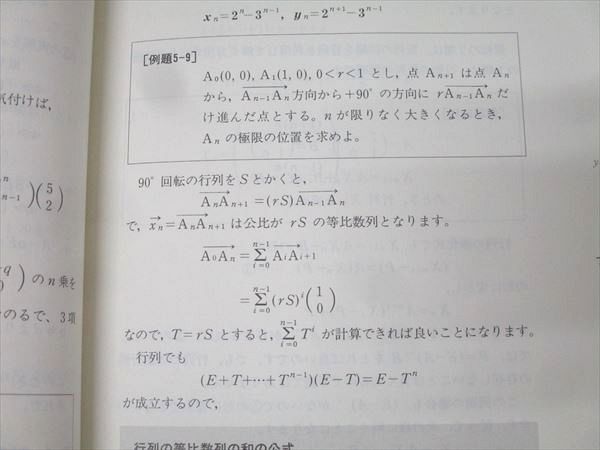 xₙ=2ⁿ−3ⁿ⁻¹, yₙ=2ⁿ⁺¹−3ⁿ⁻¹
[例題5-9]
A₀(0, 0), A₁(1, 0), 0<r<1 とし，点 Aₙ₊₁ は点 Aₙ
から，Aₙ₋₁Aₙ方向から+90°の方向に rAₙ₋₁Aₙ だ
け進んだ点とする。n が限りなく大きくなるとき，
Aₙ の極限の位置を求めよ。
90°回転の行列を S とかくと，
AₙAₙ₊₁=(rS)Aₙ₋₁Aₙ
で，xₙ=AₙAₙ₊₁ は公比が rS の等比数列となります。
A₀Aₙ=Σ_{i=0}^{n-1} AᵢAᵢ₊₁
=Σ_{i=0}^{n-1} (rS)ⁱ(1 0)
なので，T=rS とすると，Σ_{i=0}^{n-1} Tⁱ が計算できれば良いことになります。
行列でも
(E+T+⋯+Tⁿ⁻¹)(E−T)=E−Tⁿ
が成立するので，
行列の等比数列の和の公式
付けば，
)(5 2)
の n 乗を
のるで，3項